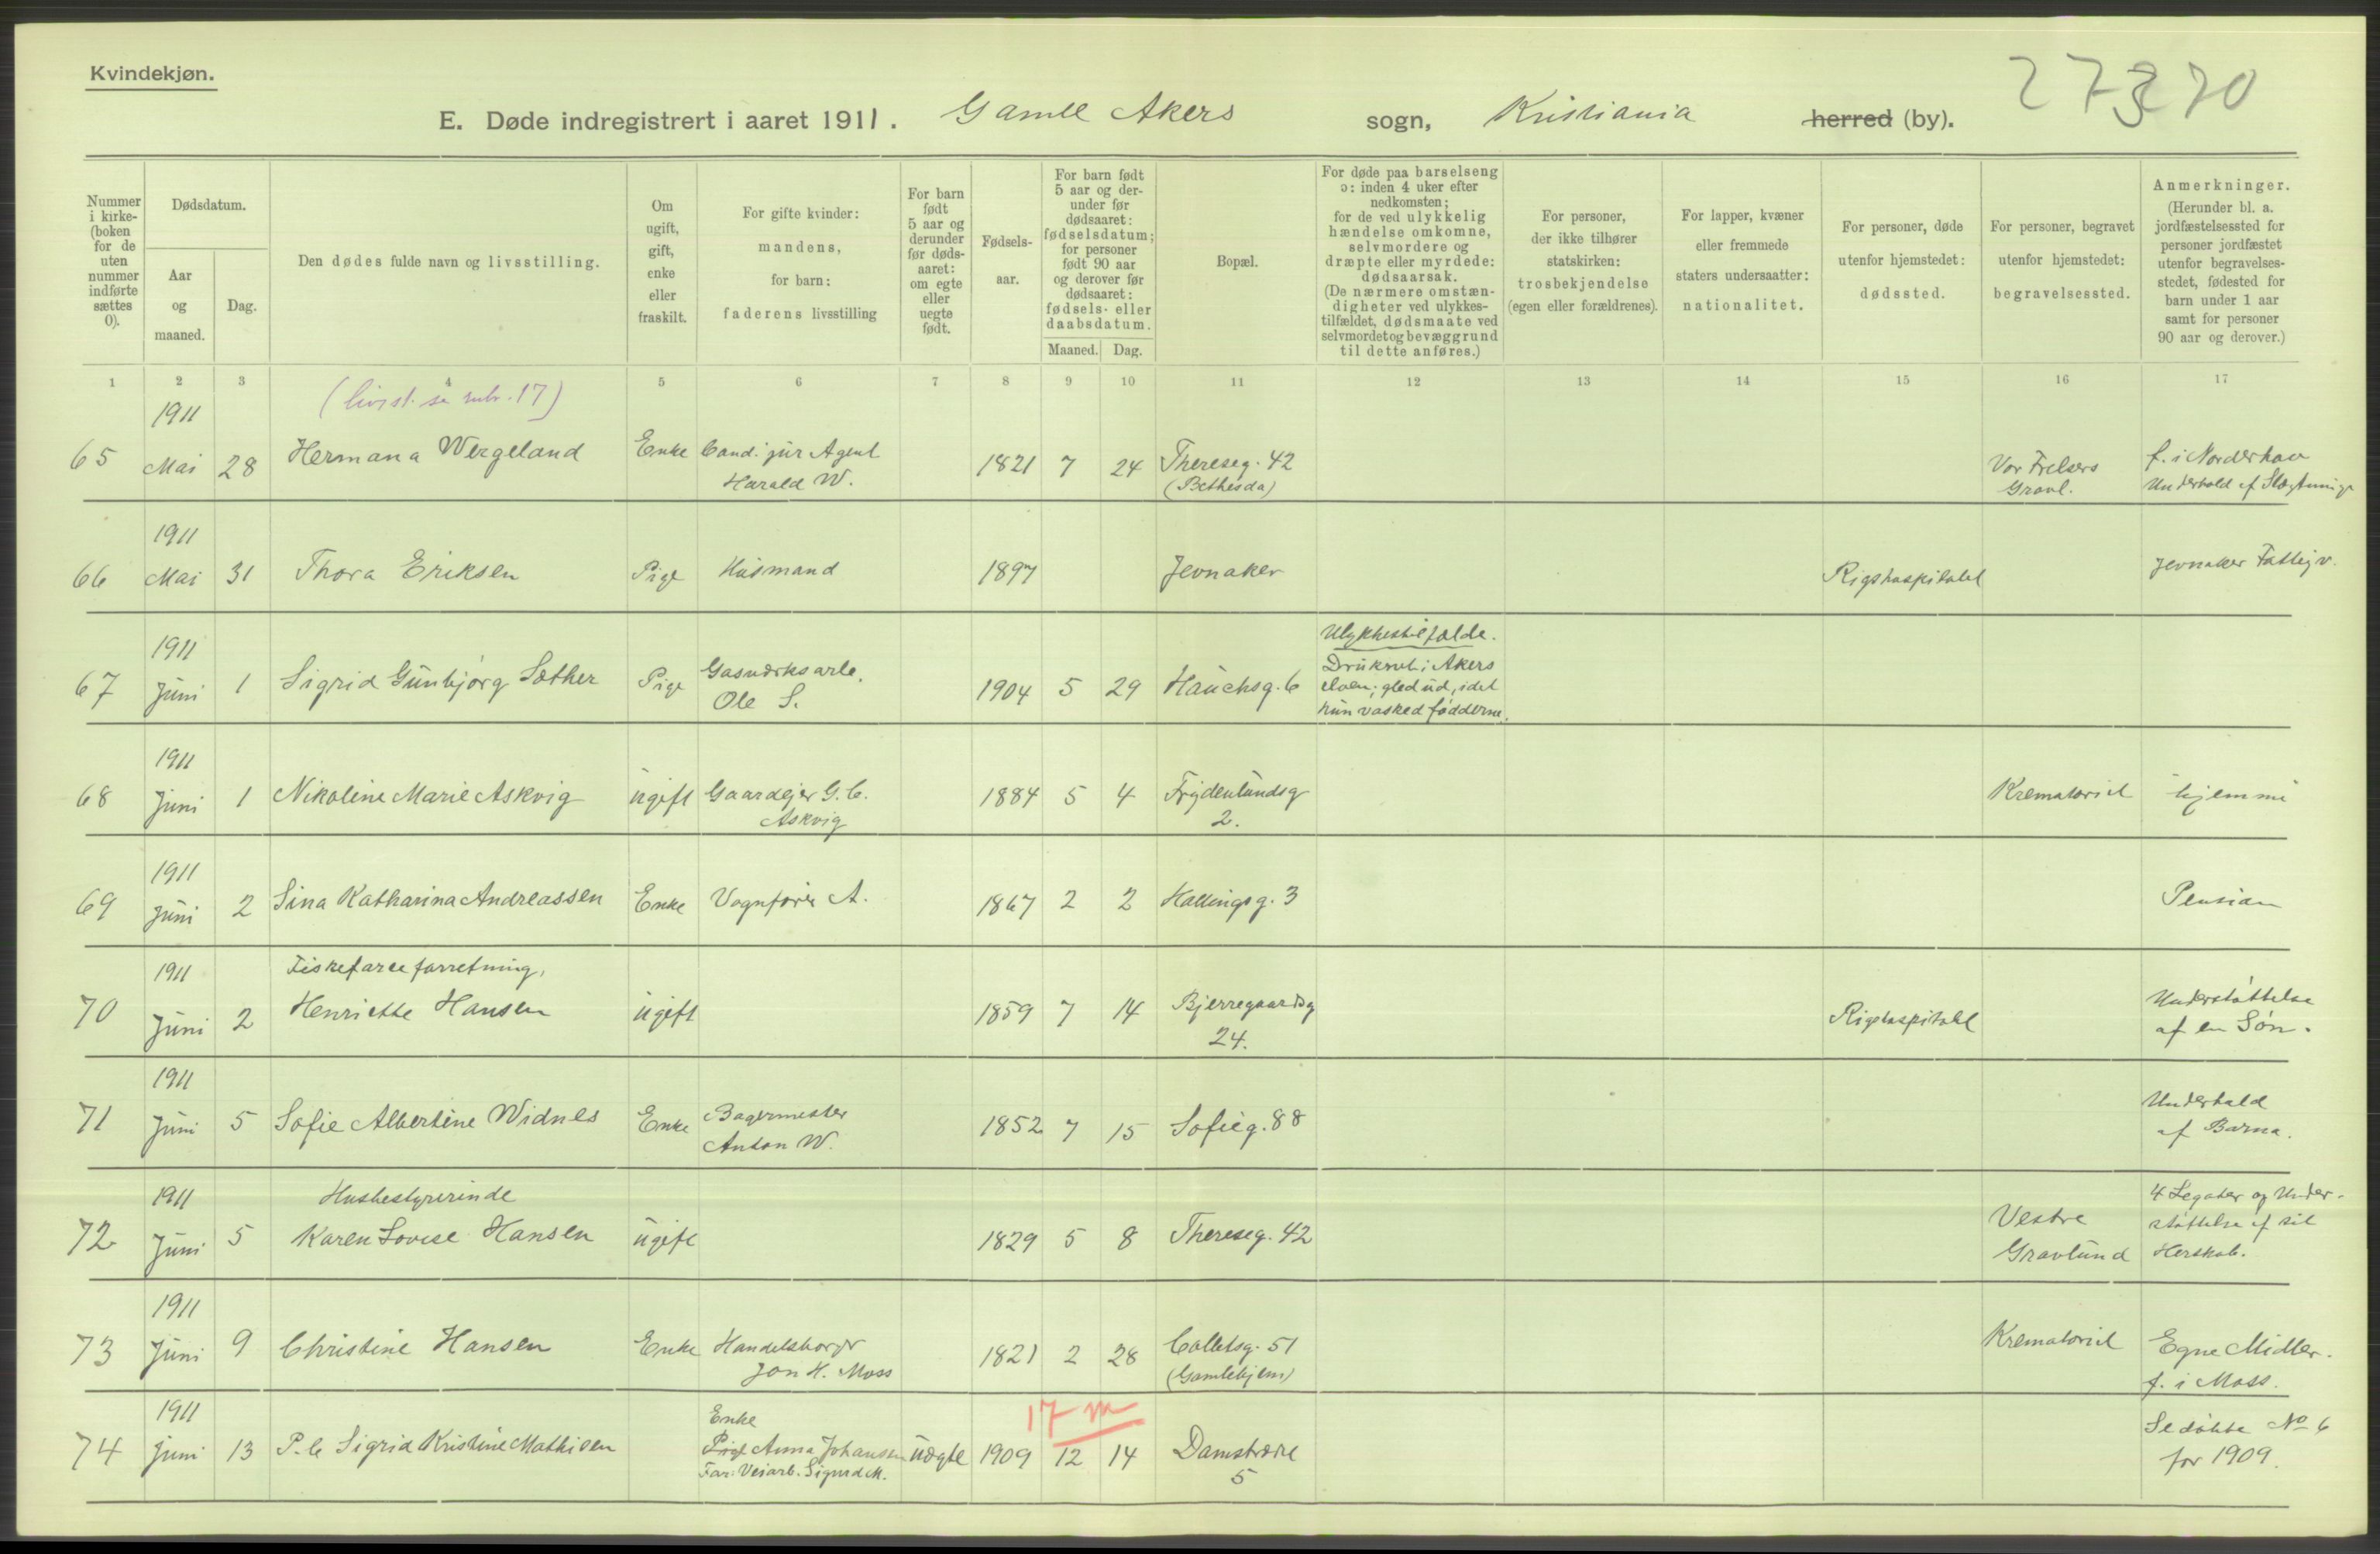 Kvindekjøn.
E. Døde indregistrert i aaret 1911. Gamle Akers sogn, Kristiania herred (by).
Nummer i kirke-(boken for de uten nummer indførte sættes 0).
Dødsdatum.
Aar og maaned.
Dag.
Den dødes fulde navn og livsstilling.
Om ugift, gift, enke eller fraskilt.
For gifte kvinder: mandens, for barn: faderens livsstilling
For barn født 5 aar og derunder før døds-aaret: om egte eller uegte født.
Fødsels-aar.
For barn født 5 aar og der-under før dødsaaret: fødselsdatum; for personer født 90 aar og derover før dødsaaret: fødsels- eller daabsdatum.
Maaned. Dag.
Bopæl.
For døde paa barselseng ɔ: inden 4 uker efter nedkomsten; for de ved ulykkelig hændelse omkomne, selvmordere og dræpte eller myrdede: dødsaarsak. (De nærmere omstæn-digheter ved ulykkes-tilfældet, dødsmaate ved selvmordet og bevæggrund til dette anføres.)
For personer, der ikke tilhører statskirken: trosbekjendelse (egen eller forældrenes).
For lapper, kvæner eller fremmede staters undersaatter: nationalitet.
For personer, døde utenfor hjemstedet: dødssted.
For personer, begravet utenfor hjemstedet: begravelsessted.
Anmerkninger. (Herunder bl. a. jordfæstelsessted for personer jordfæstet utenfor begravelses-stedet, fødested for barn under 1 aar samt for personer 90 aar og derover.)
1 2 3 4 5 6 7 8 9 10 11 12 13 14 15 16 17
(livsst. se rubr. 17)
65 1911 Mai 28 Hermana Wergeland Enke Cand. jur Agent Harald W. 1821 7 24 Thereseg. 42 (Bethesda) Vor Frelsers Gravl. f. i Norderhov Underhold af Slægtninge
66 1911 Mai 31 Thora Eriksen Pige Husmand 1897 Jevnaker Rigshospitalet Jevnaker Fattigv.
67 1911 Juni 1 Sigrid Gunbjørg Sæther Pige Gasværksarb. Ole S. 1904 5 29 Hauchsg. 6 Ulykkestilfælde. Druknet i Akers elven; gled ud, idet hun vasked fødderne.
68 1911 Juni 1 Nikoline Marie Askvig ugift Gaardejer G. C. Askvig 1884 5 4 Frydenlundsg 2. Krematoriet hjemme
69 1911 Juni 2 Sina Katharina Andreassen Enke Vognfører A. 1867 2 2 Hallingsg. 3 Pension
70 1911 Juni 2 Fiskefarceforretning, Henriette Hansen ugift 1859 7 14 Bjerregaardsg 24. Rigshospitalet Understøttelse af en Søn.
71 1911 Juni 5 Sofie Albertine Widnes Enke Bagermester Anton W. 1852 7 15 Sofieg. 88 Underhold af Barna.
72 1911 Juni 5 Husbestyrerinde Karen Lovise Hansen ugift 1829 5 8 Thereseg. 42 Vestre Gravlund 4 Legater og Under-støttelse af sit Herskab.
73 1911 Juni 9 Christine Hansen Enke Handelsborger Jon H. Moss 1821 2 28 Colletsg. 51 (Gamlehjem) Krematoriet Egne Midler. f. i Moss.
17 m
74 1911 Juni 13 P. b. Sigrid Kristine Mathisen Enke Pige Anna Johansen Far: Veiarb. Sigurd M. uægte 1909 12 14 Damstræde 5 Se døbte No 6 for 1909.